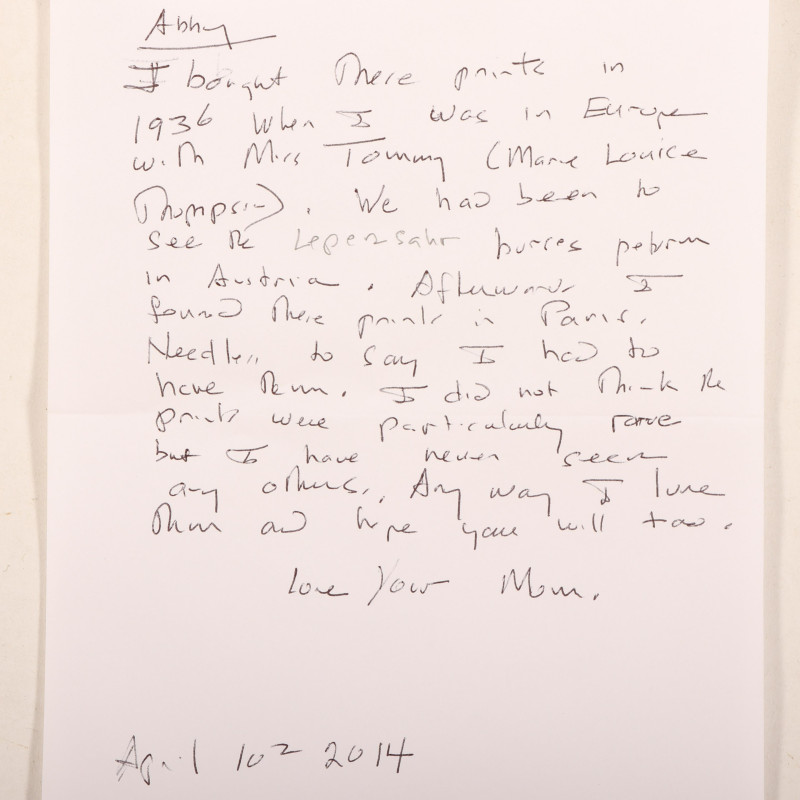 Abby
I bought these prints in
1936 when I was in Europe
with Miss Tommy (Marie Louise
Thompson). We had been to
see the horses perform
in Austria. Afterwards I
found these prints in Paris.
Needless to say I had to
have them. I did not think the
prints were particularly rare
but I have never seen
any others.. Any way I love
them and hope you will too.
love Your Mom.
April 10 2014